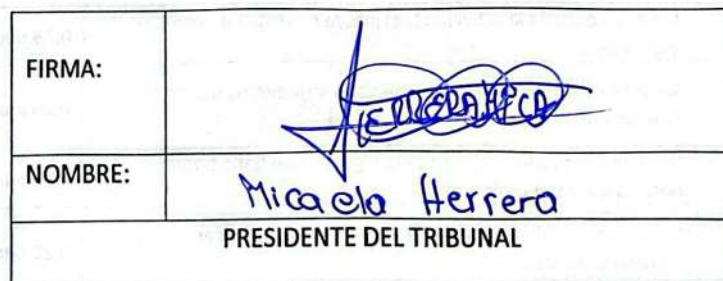 FIRMA:
NOMBRE:
Micaela Herrera
PRESIDENTE DEL TRIBUNAL